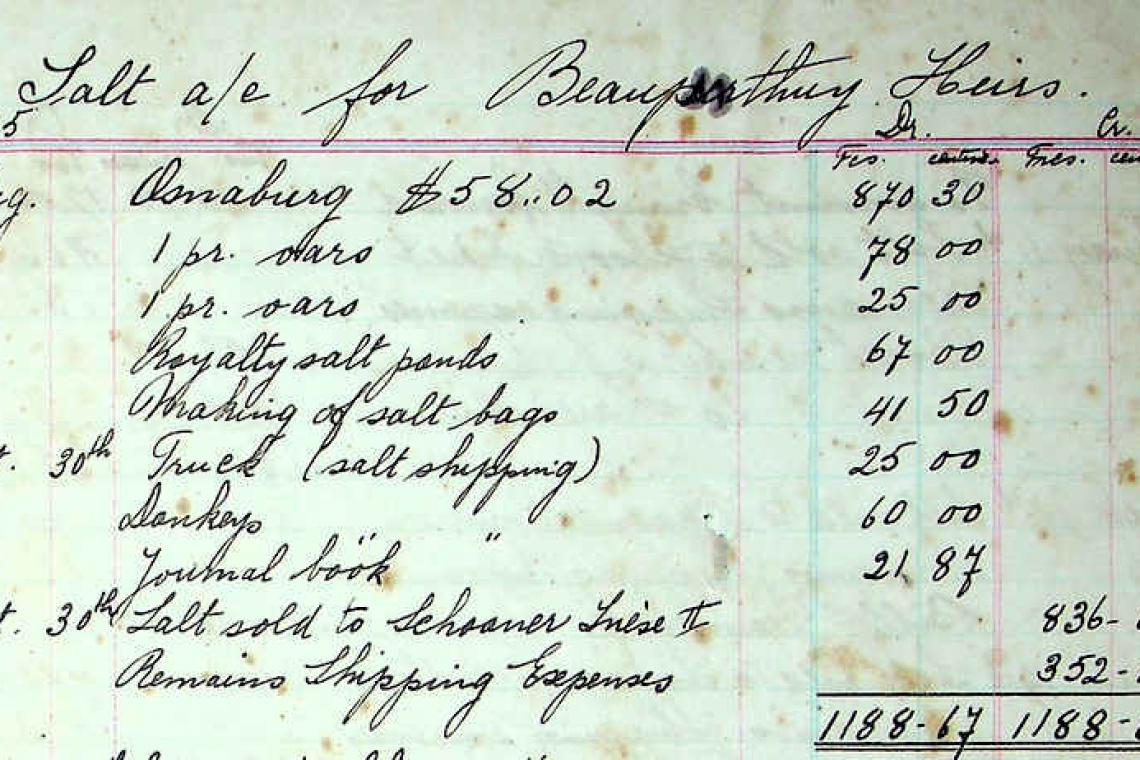 Salt a/c for Beauperthuy Heirs.
5 Dr. Cr.
Fcs. centms. Fncs.
g. Osnaburg $58..02 870 30
1 pr. oars 78 00
1 pr. oars 25 00
Royalty salt ponds 67 00
Making of salt bags 41 50
t. 30th Truck (salt shipping) 25 00
Donkeys " " 60 00
Journal book 21 87
t. 30th Salt sold to Schooner Inèse II 836-
Remains Shipping Expenses 352-
1188-67 1188-